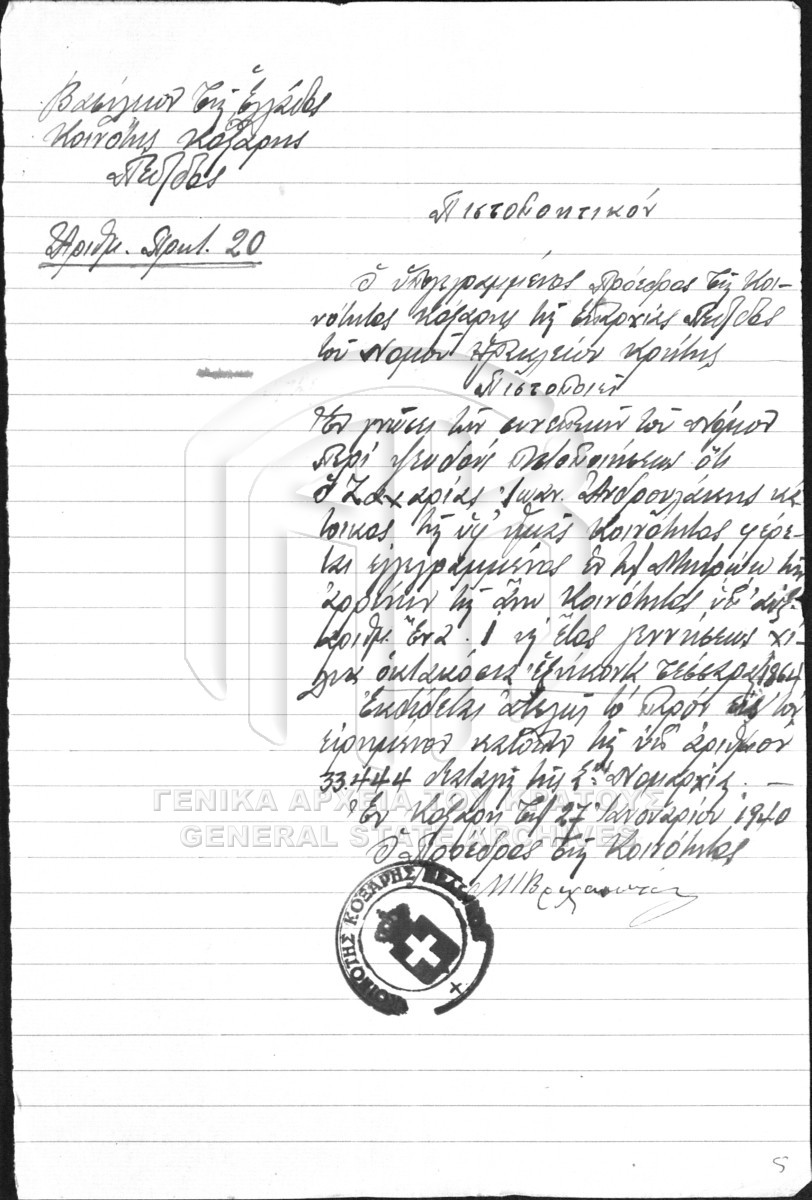 Βασίλειον τῆς Ἑλλάδος
Κοινότης Κοξάρης
Πεδιάδος
Ἀριθμ. Πρωτ. 20
Πιστοποιητικόν
Ὁ ὑπογεγραμμένος Πρόεδρος τῆς Κοι-
νότητος Κοξάρης τῆς ἐπαρχίας Πεδιάδος
τοῦ Νομοῦ Ἡρακλείου Κρήτης
Πιστοποιεῖ
Ἐν γνώσει τῶν συνεπειῶν τοῦ Νόμου
περί ψευδοῦς πιστοποιήσεως ὅτι
ὁ Ζαχαρίας Ἰωαν. Ἀνδρουλάκης κά-
τοικος τῆς ὑφ' ἡμᾶς Κοινότητος φέρε-
ται ἐγγεγραμμένος ἐν τῷ Μητρώῳ τῶν
ἀρρένων τῆς ἄνω Κοινότητος ὑπ' αὔξ.
ἀριθμ. Ἕνα 1 καί ἔτος γεννήσεως χί-
λια ὀκτακόσια ἑξήκοντα τέσσαρα 1864
Ἐκδίδεται ἀτελῶς τό παρόν εἰς τόν
εἰρημένον κατόπιν τῆς ὑπ' ἀριθμόν
33.444 διαταγῆς τῆς Σης Νομαρχίας. —
Ἐν Κοξάρῃ τῇ 27 Ἰανουαρίου 1940
Ὁ Πρόεδρος τῆς Κοινότητος
ΚΟΙΝΟΤΗΣ ΚΟΞΑΡΗΣ
ΓΕΝΙΚΑ ΑΡΧΕΙΑ ΤΟΥ ΚΡΑΤΟΥΣ
GENERAL STATE ARCHIVES
5